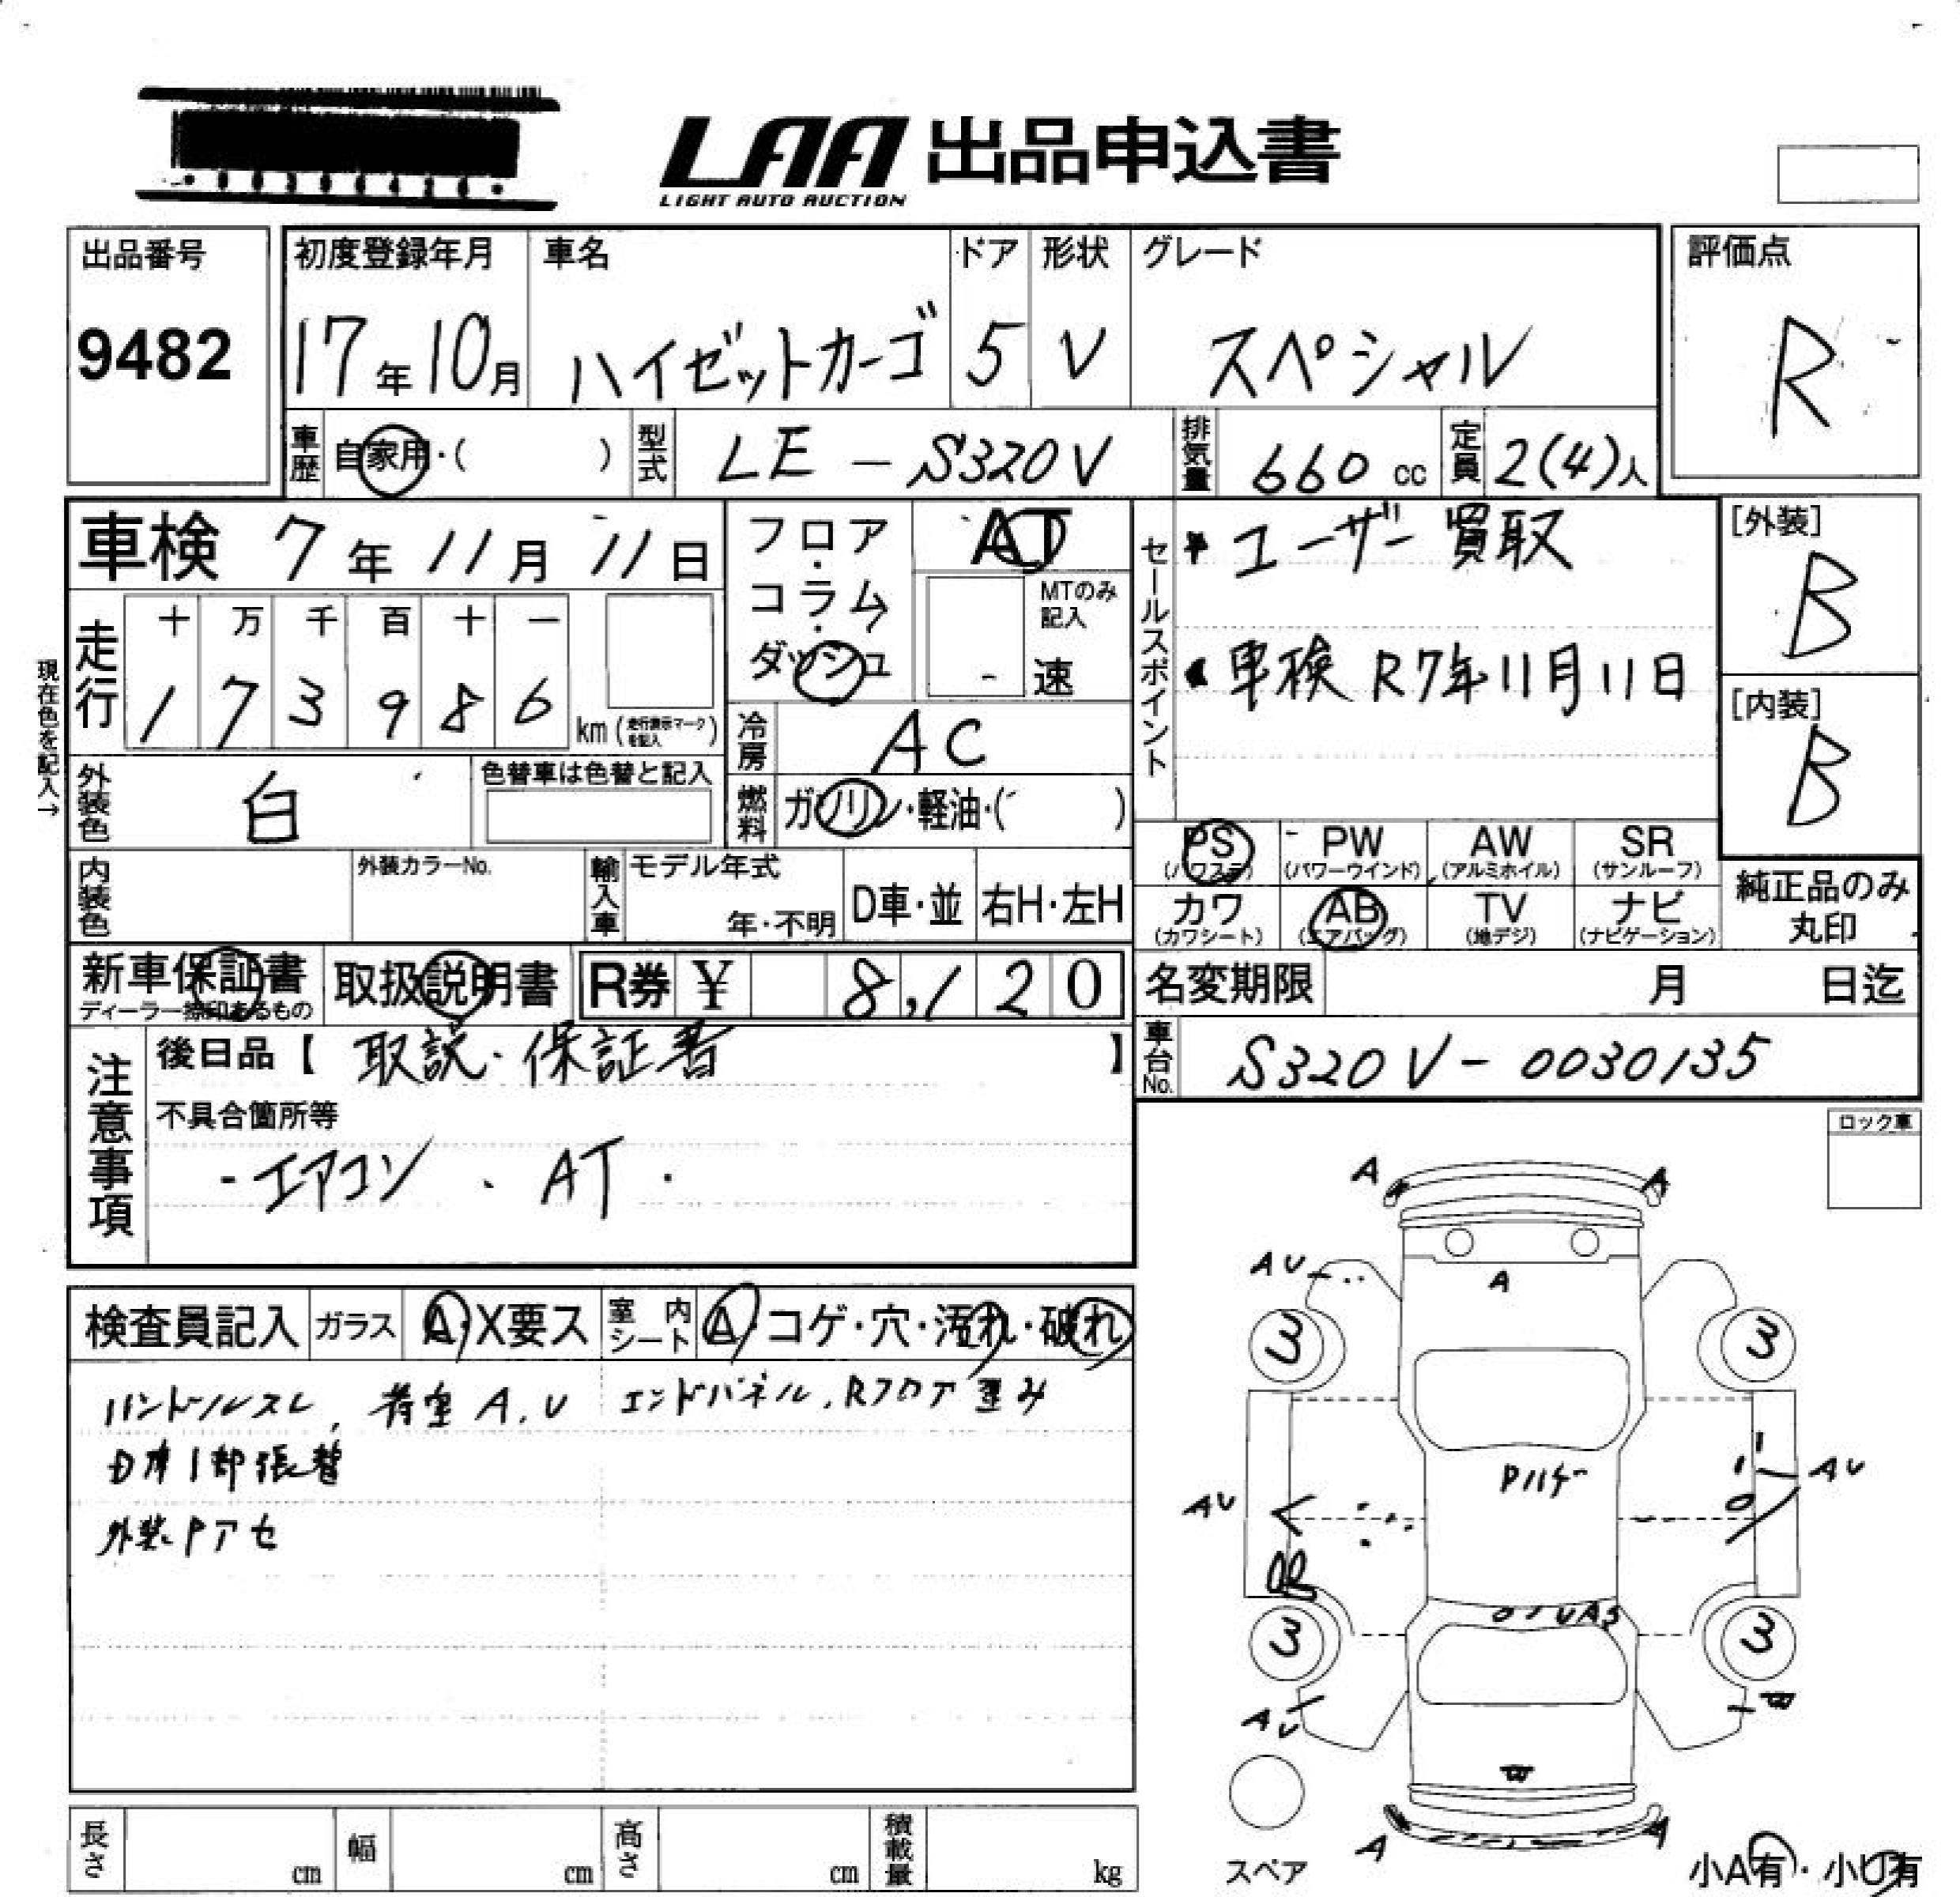 LAA 出品申込書
LIGHT AUTO AUCTION
出品番号
9482
初度登録年月
17年10月
車名
ハイゼットカーゴ
ドア
5
形状
V
グレード
スペシャル
評価点
R
車歴 自家用・( )
型式 LE-S320V
排気量 660 cc
定員 2(4)人
車検 7年11月11日
フロア・コラム・ダッシュ
AT
MTのみ記入
- 速
セールスポイント
ユーザー買取
車検 R7年11月11日
[外装]
B
[内装]
B
現在色を記入→
走行
十 万 千 百 十 一
1 7 3 9 8 6 km (走行表示マークを記入)
冷房 AC
外装色 白
色替車は色替と記入
燃料 ガソリン・軽油・( )
PS (パワステ) PW (パワーウインド) AW (アルミホイル) SR (サンルーフ)
カワ (カワシート) AB (エアバッグ) TV (地デジ) ナビ (ナビゲーション)
純正品のみ丸印
内装色
外装カラーNo.
輸入車
モデル年式
年・不明
D車・並 右H・左H
新車保証書
ディーラー捺印あるもの
取扱説明書
R券 ¥ 8,120
名変期限 月 日迄
車台No. S320V-0030135
注意事項
後日品【 取説・保証書 】
不具合箇所等
-エアコン、AT.
ロック車
検査員記入 ガラス A・X要ス 室内シート A・コゲ・穴・汚れ・破れ
ハンドルスレ、荷室A、U エンドパネル、Rフロア歪み
1部張替
外装
A A
AU
A
3 3
Pハゲ
AU
AU
3 3
AU
W
W
A A
スペア
小A有・小U有
長さ cm 幅 cm 高さ cm 積載量 kg